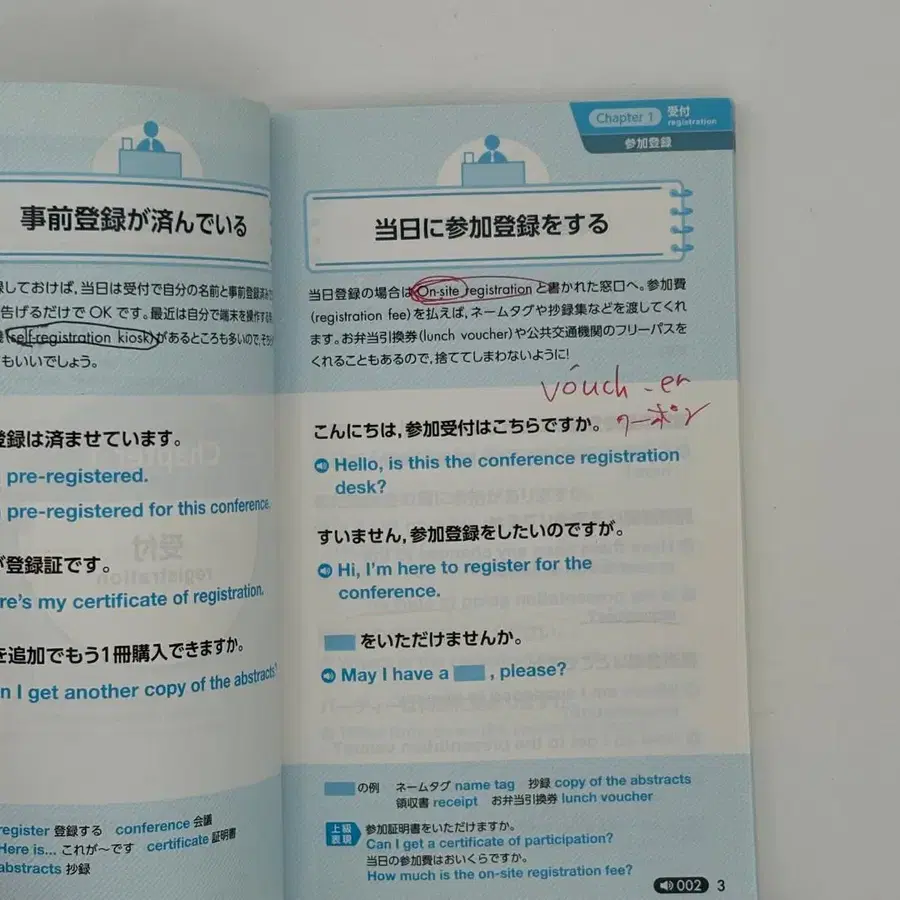 事前登録が済んでいる
しておけば, 当日は受付で自分の名前と事前登録済み
告げるだけでOKです。最近は自分で端末を操作する
(self-registration kiosk)があるところも多いので,
もいいでしょう。
登録は済ませています。
pre-registered.
pre-registered for this conference.
登録証です。
re's my certificate of registration.
を追加でもう1冊購入できますか。
n I get another copy of the abstracts?
register 登録する conference 会議
Here is... これが〜です certificate 証明書
abstracts 抄録
Chapter 1 受付
registration
参加登録
当日に参加登録をする
当日登録の場合は On-site registration と書かれた窓口へ。参加費
(registration fee)を払えば, ネームタグや抄録集などを渡してくれ
ます。お弁当引換券(lunch voucher)や公共交通機関のフリーパスを
くれることもあるので, 捨ててしまわないように!
vouch-er
クーポン
こんにちは, 参加受付はこちらですか。
Hello, is this the conference registration
desk?
すいません, 参加登録をしたいのですが。
Hi, I'm here to register for the
conference.
をいただけませんか。
May I have a , please?
の例 ネームタグ name tag 抄録 copy of the abstracts
領収書 receipt お弁当引換券 lunch voucher
上級
表現
参加証明書をいただけますか。
Can I get a certificate of participation?
当日の参加費はおいくらですか。
How much is the on-site registration fee?
002 3